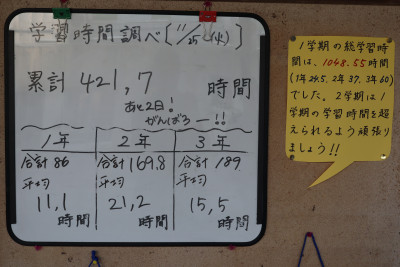 学習時間調べ〔11/25(火)〕
累計 421,7 時間
あと2日！
がんばろー!!
1年 2年 3年
合計 86 合計 169.8 合計 189
平均 平均 平均
11,1 21,2 15,5
時間 時間 時間
1学期の総学習時
間は、1048.55時間
(1年29.5、2年37、3年60)
でした。2学期は1
学期の学習時間を超
えられるよう頑張り
ましょう!!